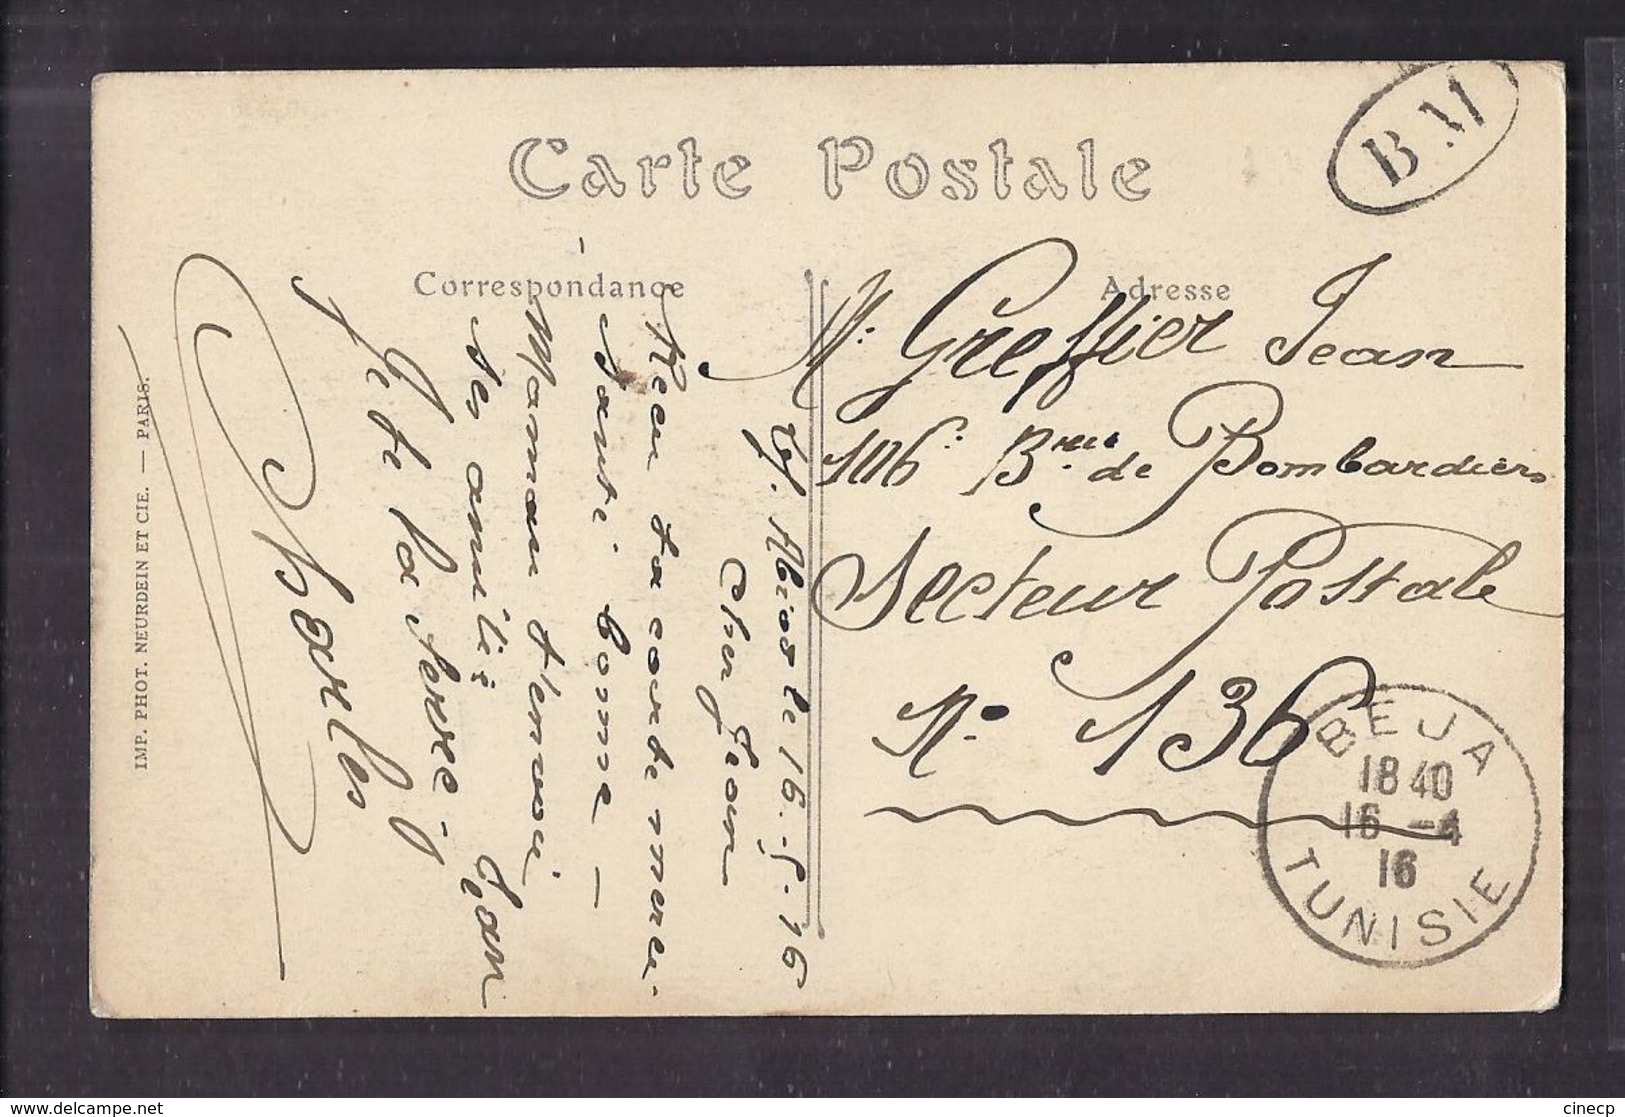 Carte Postale
B M
Correspondance
Adresse
le 16. 5. 16
Cher Jean
Recu ta carte merci.
Santé bonne —
Maman t'envoie
ses amitiés
Je te la serre. Jean
Charles
Mr. Greffier Jean
106e Brie de Bombardiers
Secteur Postale
No. 136
BEJA
18 40
16 -4
16
TUNISIE
IMP. PHOT. NEURDEIN ET CIE. — PARIS.
delcampe.net
cinecp